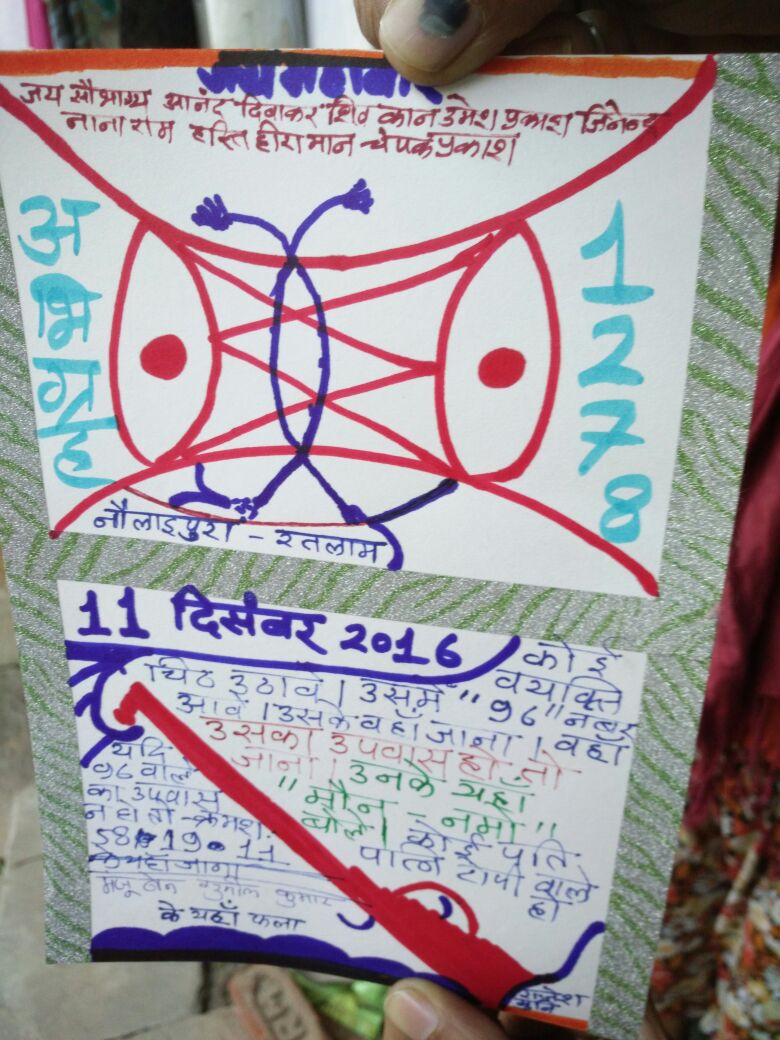 जय महावीर
जय सौभाग्य आनंद दिवाकर शिव कान उमेश प्रकाश जिनेन्द्र
नाना राम हस्ति हीरा मान चंपक प्रकाश
अभिग्रह
1278
नौलाइपुरा - रतलाम
11 दिसंबर 2016
कोई
व्यक्ति
चिठ उठावे । उसमें "96" नंबर
आवे । उसके वहाँ जाना । वहाँ
उसका उपवास हो तो
जाना । उनके यहाँ
"मौन - नमो"
बोले । कोई पति-
पत्नि टोपी वाले
हो
यदि
96 वाले
का उपवास
न हो तो - क्रमशः
58 • 19 • 11
के यहाँ जाना
मंजू बेन कुमार
के यहाँ फला
राजेश
मुनि